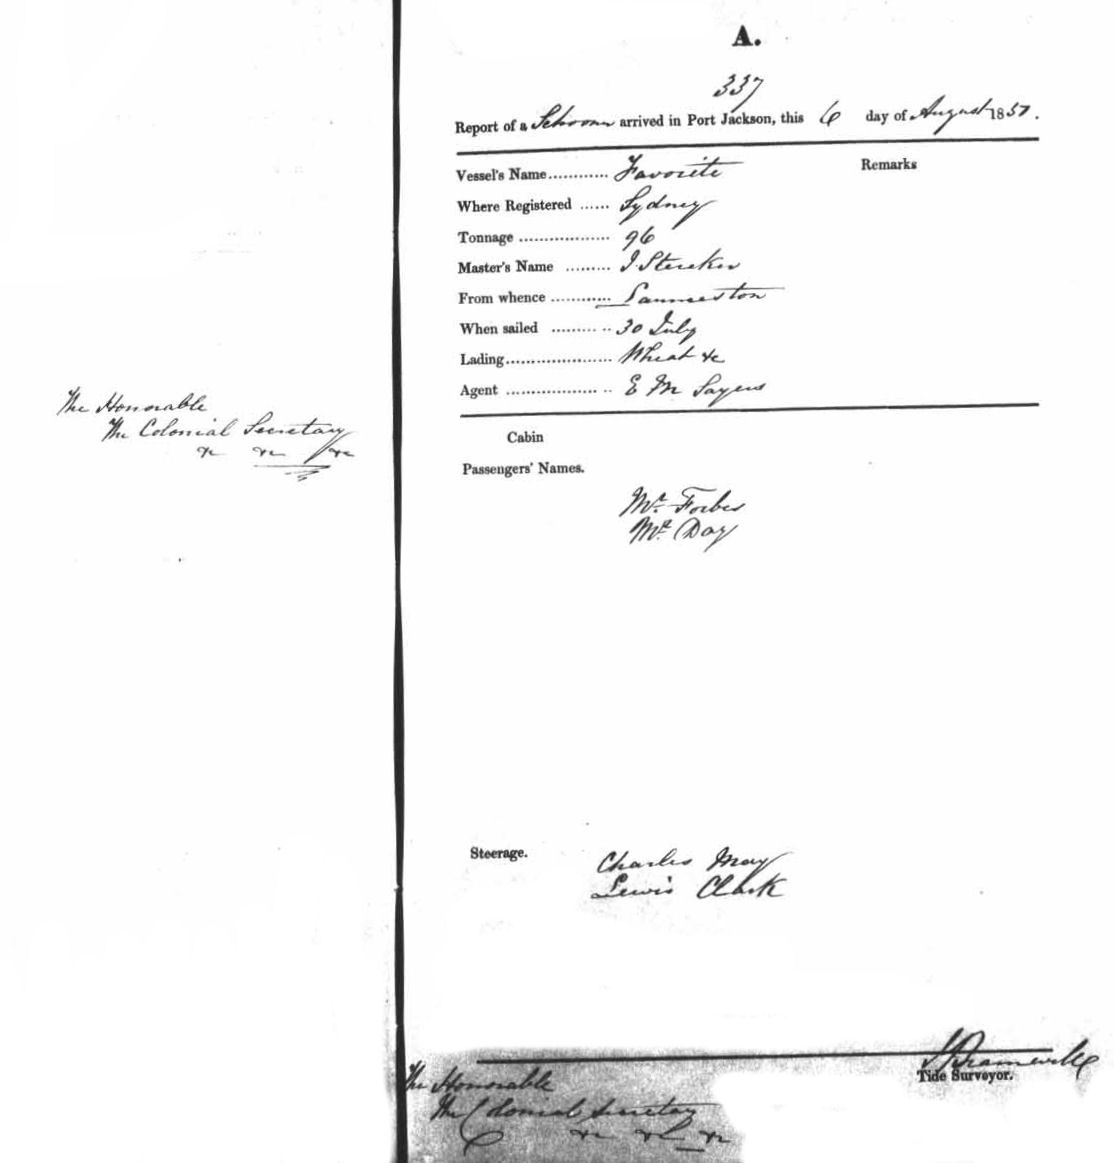 The Honorable
The Colonial Secretary
&c &c &c
A.
337
Report of a Schooner arrived in Port Jackson, this 6 day of August 1851.
Remarks
Vessel's Name............ Favorite
Where Registered ...... Sydney
Tonnage .................. 96
Master's Name ......... J
From whence ............ Launceston
When sailed ......... .. 30 July
Lading...................... Wheat &c
Agent .................... .. E M Sayers
Cabin
Passengers' Names.
Mr. Forbes
Mr. Day
Steerage.
Charles May
Lewis Clark
Tide Surveyor.
The Honorable
The Colonial Secretary
&c &c &c